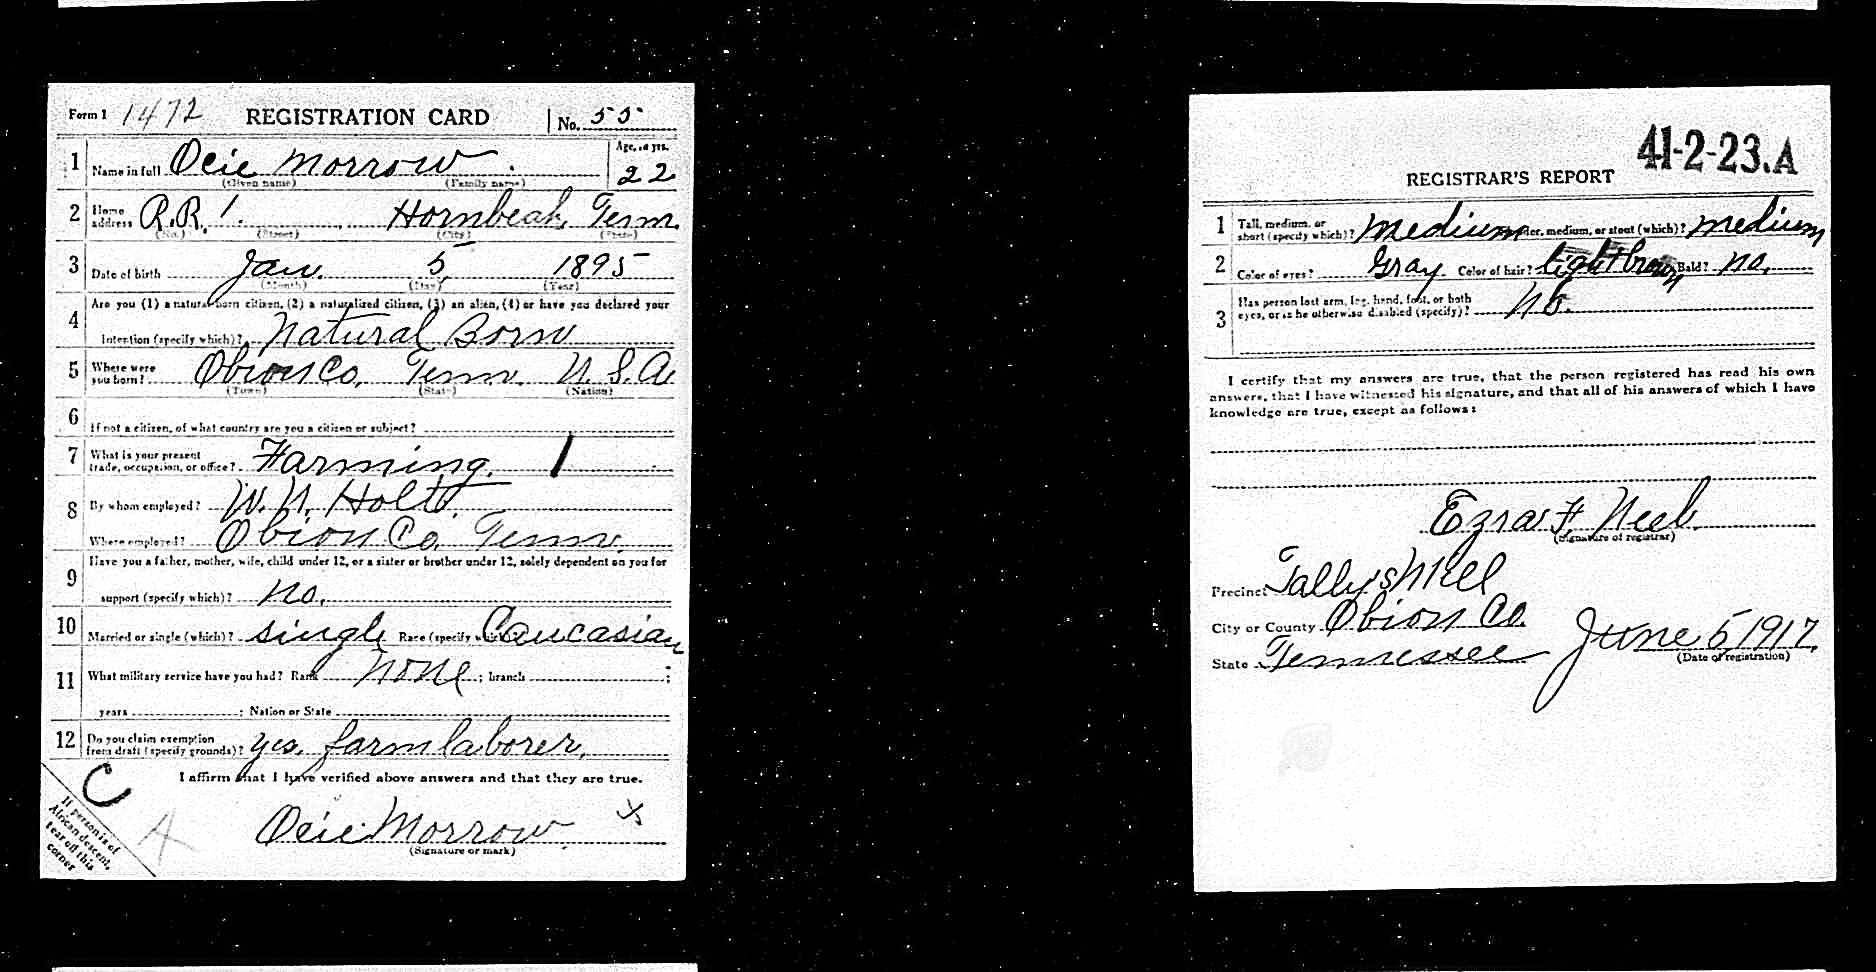 Form 1 1472 REGISTRATION CARD No. 55
1 Name in full Ocie Morrow. Age, in yrs. 22
(Given name) (Family name)
2 Home address R.R. 1. Hornbeak, Tenn.
(No.) (Street) (City) (State)
3 Date of birth Jan. 5, 1895
(Month) (Day) (Year)
Are you (1) a natural born citizen, (2) a naturalized citizen, (3) an alien, (4) or have you declared your
4 intention (specify which)? Natural Born
5 Where were you born? Obion Co. Tenn. U.S.A.
(Town) (State) (Nation)
6 If not a citizen, of what country are you a citizen or subject?
7 What is your present trade, occupation, or office? Farming. 1
8 By whom employed? W. N. Holt.
Where employed? Obion Co. Tenn.
9 Have you a father, mother, wife, child under 12, or a sister or brother under 12, solely dependent on you for
support (specify which)? No.
10 Married or single (which)? single Race (specify which)? Caucasian
11 What military service have you had? Rank None ; branch ;
years ; Nation or State
12 Do you claim exemption from draft (specify grounds)? yes. farm laborer.
I affirm that I have verified above answers and that they are true.
C
If person is of
African descent,
tear off this
corner
A
Ocie Morrow. x
(Signature or mark)
41-2-23.A
REGISTRAR'S REPORT
1 Tall, medium, or short (specify which)? Medium Slender, medium, or stout (which)? medium
2 Color of eyes? Gray Color of hair? light brown Bald? No.
3 Has person lost arm, leg, hand, foot, or both
eyes, or is he otherwise disabled (specify)? No.
I certify that my answers are true, that the person registered has read his own
answers, that I have witnessed his signature, and that all of his answers of which I have
knowledge are true, except as follows:
Ezra F. Neeb.
(Signature of registrar)
Precinct Tally's Mill
City or County Obion Co.
State Tennessee June 5, 1917.
(Date of registration)